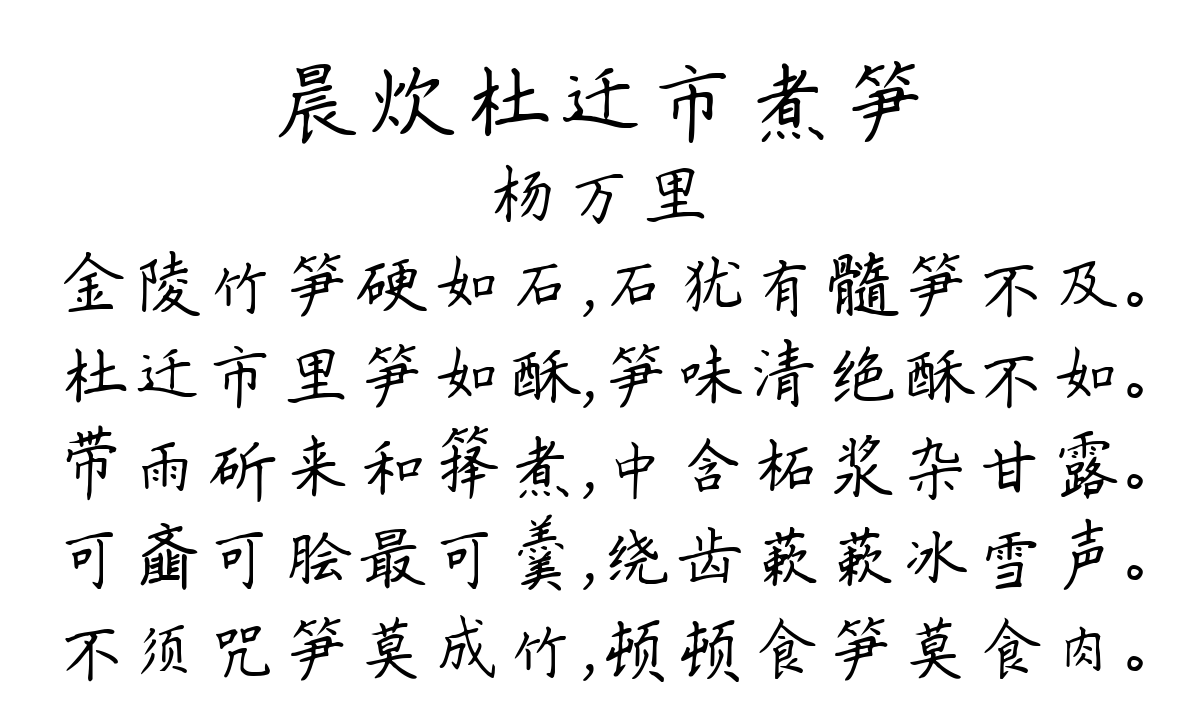 晨炊杜迁市煮笋
杨万里
金陵竹笋硬如石,石犹有髓笋不及。
杜迁市里笋如酥,笋味清绝酥不如。
带雨斫来和箨煮,中含柘浆杂甘露。
可齑可脍最可羹,绕齿蔌蔌冰雪声。
不须咒笋莫成竹,顿顿食笋莫食肉。